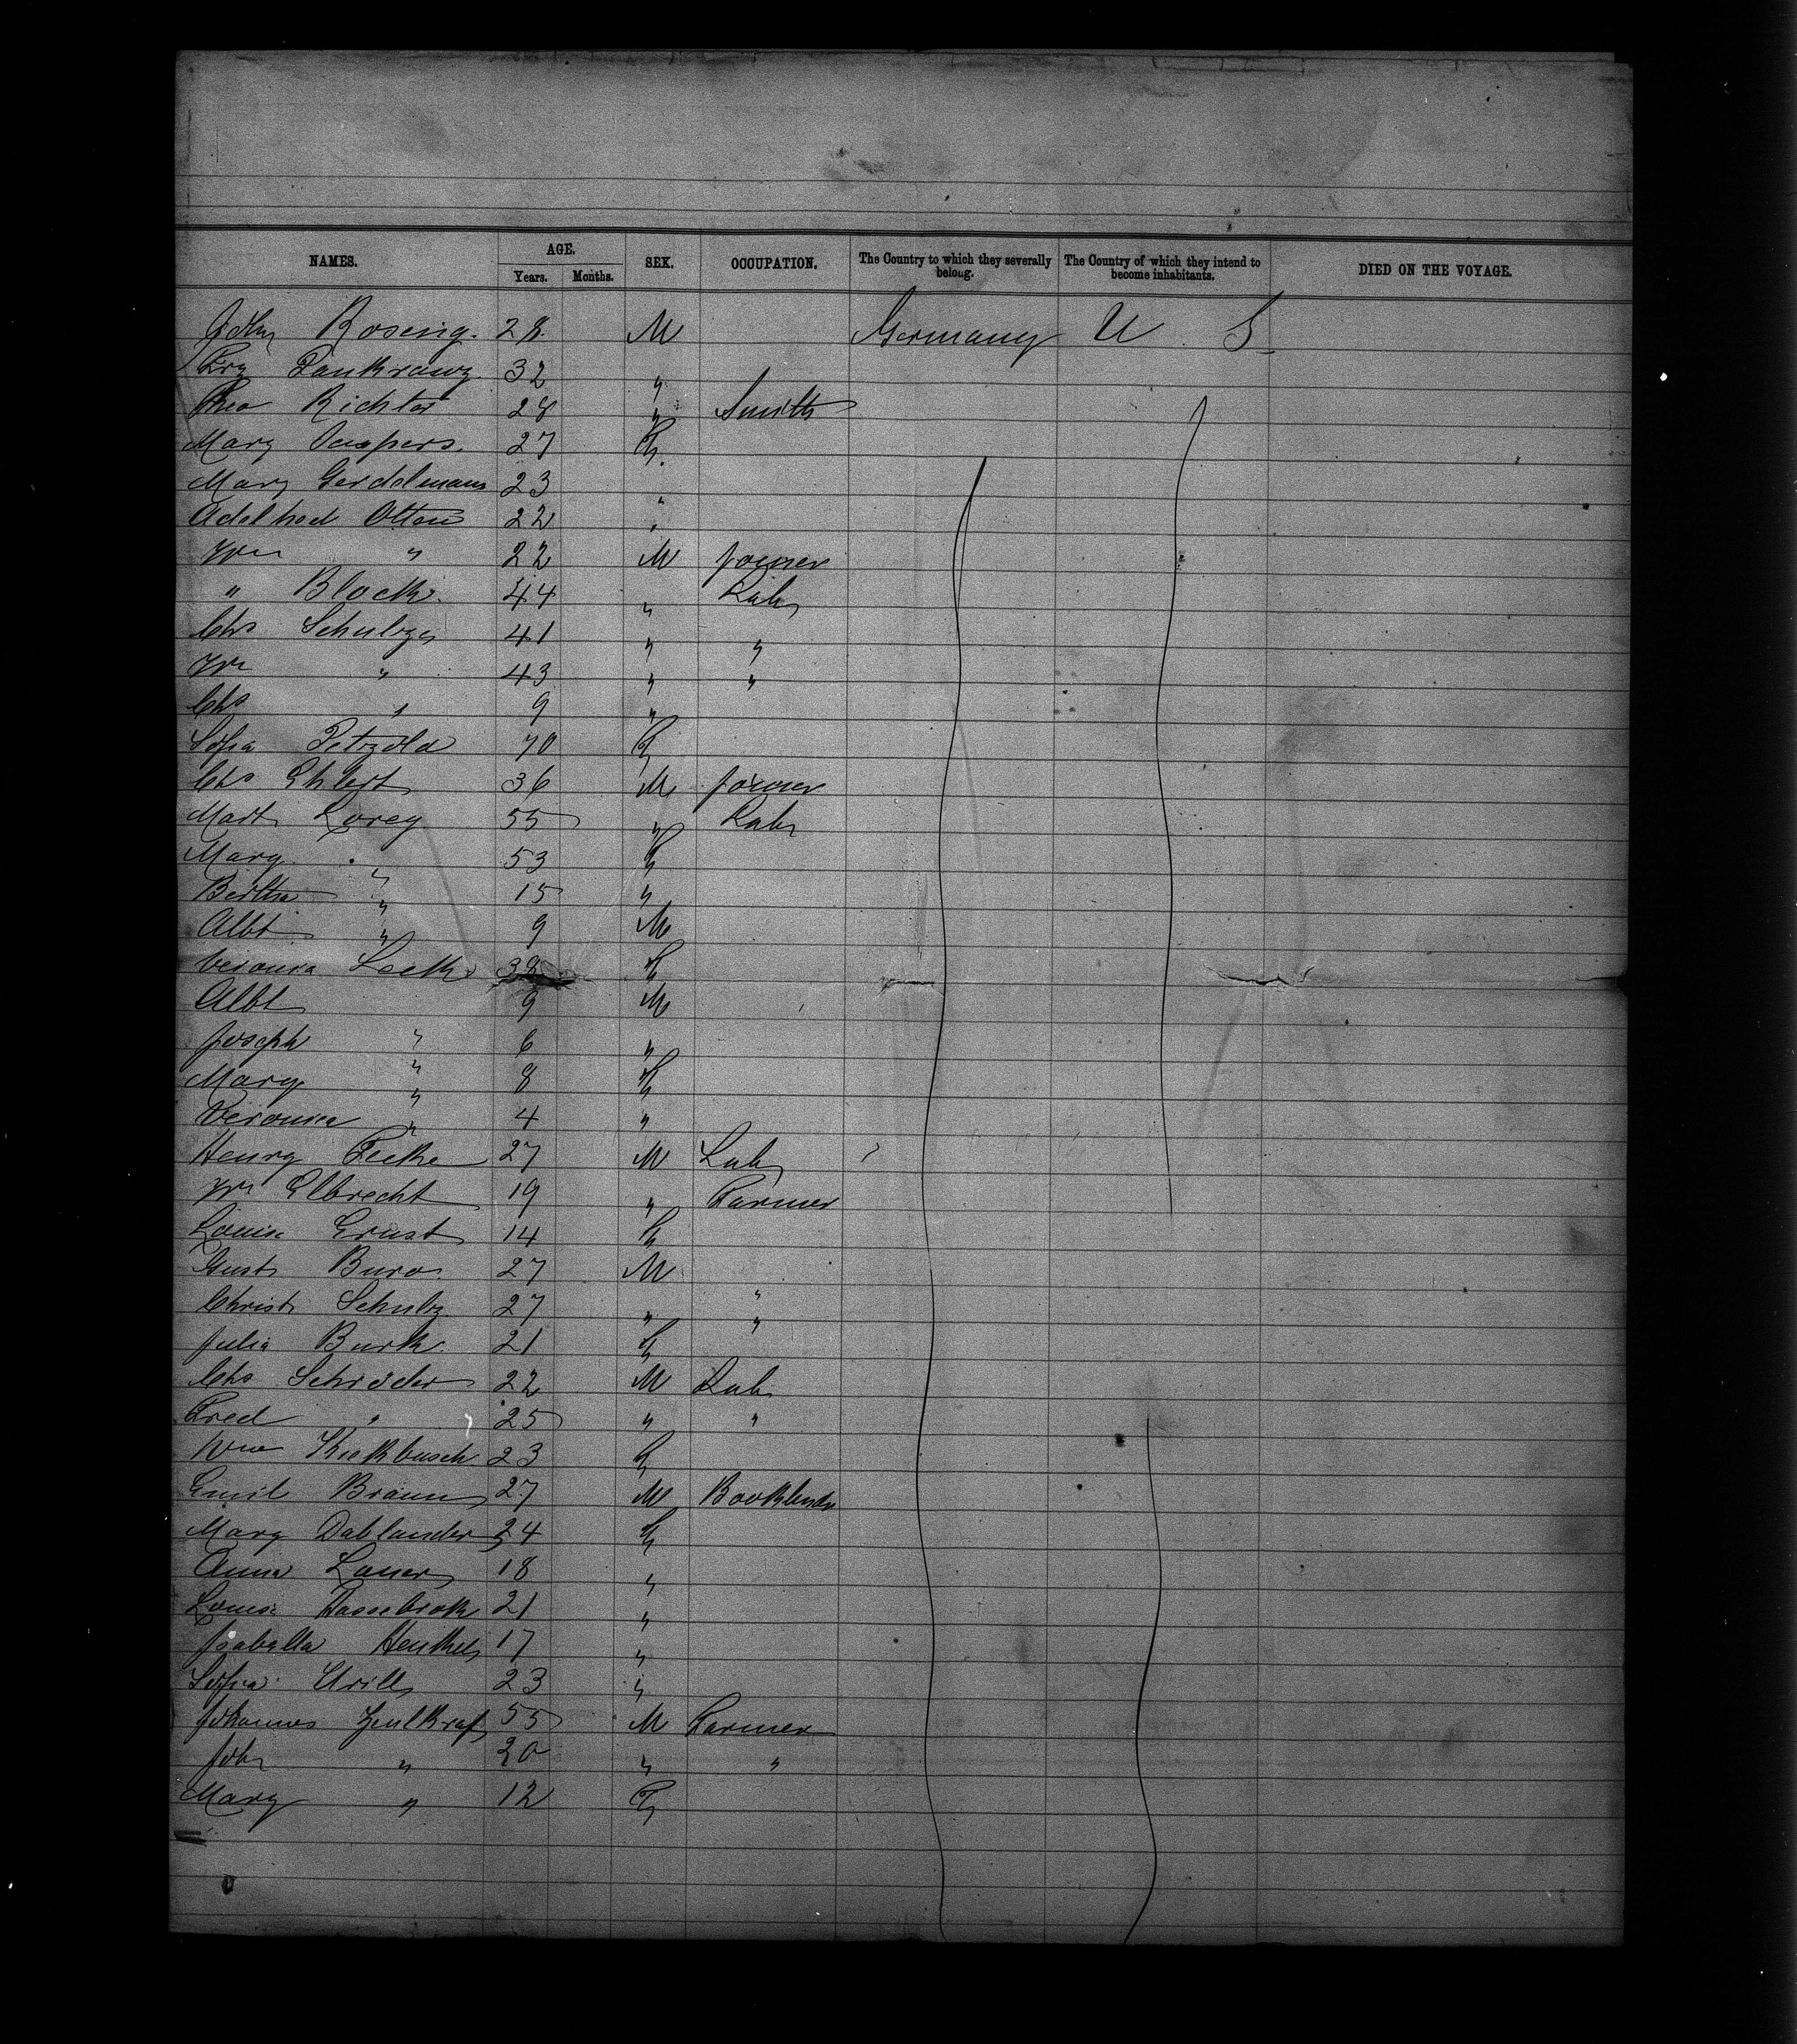 NAMES. AGE. SEX. OCCUPATION. The Country to which they severally belong. The Country of which they intend to become inhabitants. DIED ON THE VOYAGE.
Years. Months.
John Rosing. 28 M Germany U S
32 "
Theo Richter 28 " Smith
Mary Caspers. 27 F.
Mary Gerdelmann 23 "
Adelheid Otten 22 "
Wm " 22 M joiner
" Block. 44 " Lab
Chs Schulze 41 " "
Wm " 43 " "
Chs " 9 "
Sofia Petzold 70 F
Chs Ehlert 36 M joiner
Mart Lorey 55 " Lab
Marg " 53 F
Bertha " 15 "
Albt " 9 M
Veronica 38 F
Albt " 9 M
Joseph " 6 "
Mary " 8 F
Veronica " 4 "
Henry Fecke 27 M Lab
Wm Elbrecht 19 " Farmer
Louise Ernst 14 F
Gust Buro 27 M "
Christ Schulz 27 " "
Julia Burk 21 F
Chs Schröder 22 M Lab
Fred " 25 " "
Wm Kiekbusch 23 F
Emil Braun 27 M Bookbinder
Mary Dablander 24 F
Anna Lauer 18 "
Louise Hassebrok 21 "
Isabella Henkel 17 "
Sofia 23 "
Johannes 55 M Farmer
John " 20 " "
Mary " 12 F